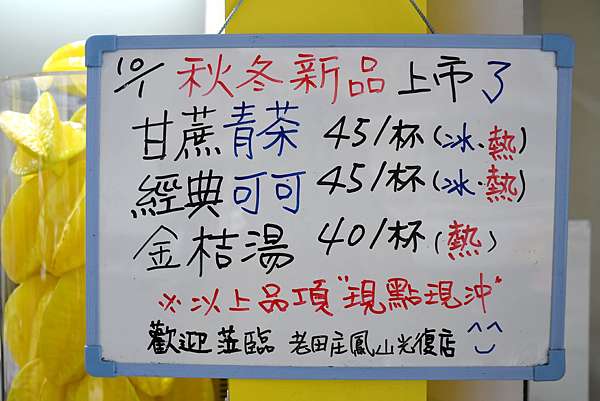 10/1 秋冬新品上市了
甘蔗青茶 45/杯(冰.熱)
經典可可 45/杯(冰.熱)
金桔湯 40/杯(熱)
※以上品項"現點現沖"
歡迎蒞臨 老田庄鳳山光復店 ^^